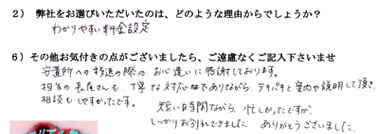 2） 弊社をお選びいただいたのは、どのような理由からでしょうか?
わかりやすい料金設定
6）その他お気付きの点がございましたら、ご遠慮なくご記入下さいませ
安置所への移送の際のお心遣いに感謝しております。
担当の長尾さんも、丁寧な対応でありながら、テキパキと案内や説明して頂き
相談もしやすかったです。
短い時間ながら、忙しかったですが、
しっかりお別れできました。ありがとうございました。